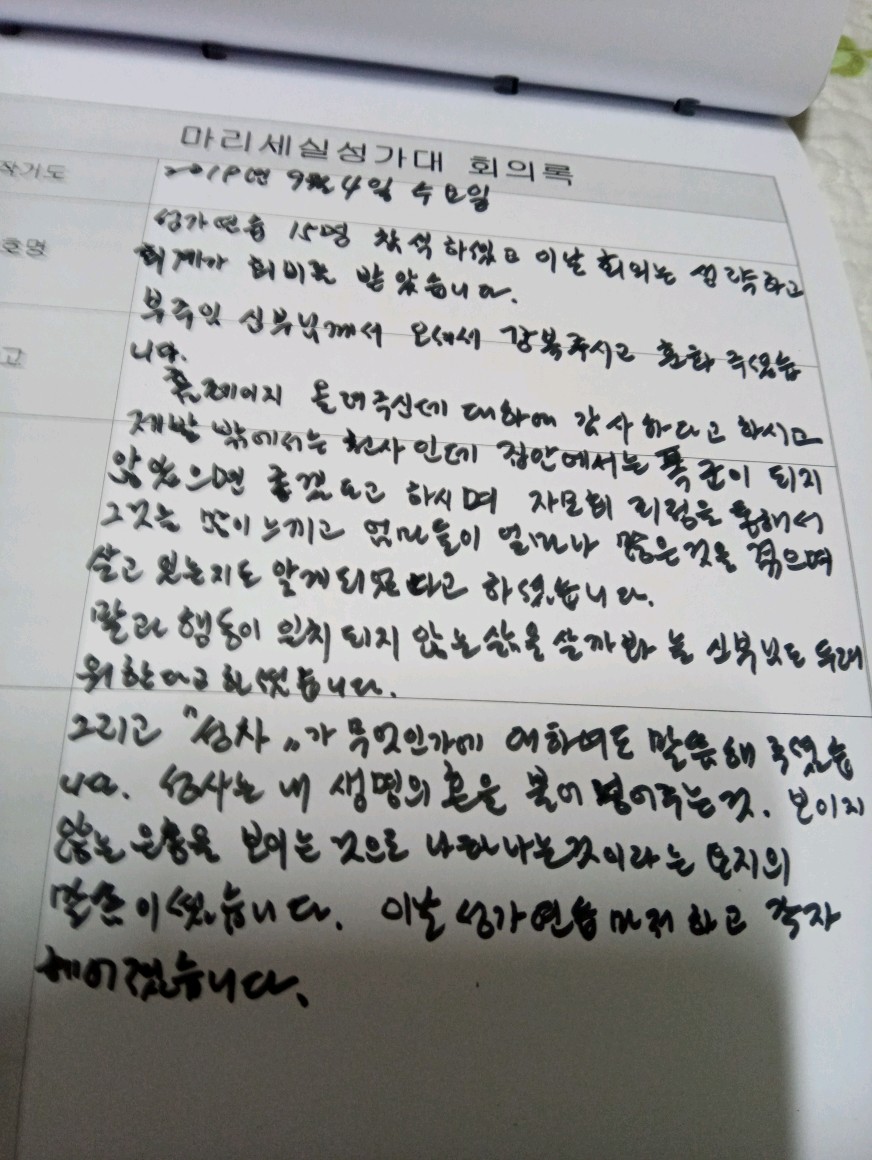 마리세실성가대 회의록
작기도
2019년 9월 4일 수요일
호명
성가연습 15명 참석 하셨고 이날 회의는 섭략하고
회계가 회비를 받았습니다.
부주임 신부님께서 오셔서 강복주시고 훈화 주셨습
고
니다.
홈페이지 올려주신데 대하여 감사하다고 하시며
제발 밖에서는 천사인데 집안에서는 폭군이 되지
않았으면 좋겠다고 하시며 자모회 피정을 통해서
그것을 많이 느끼고 엄마들이 얼마나 많은것을 겪으며
살고 있는지도 알게되었다고 하셨습니다.
말과 행동이 일치 되지 않는 삶을 살까봐 늘 신부님도 두려
워한다고 하셨습니다.
그리고 "성사"가 무엇인가에 대하여도 말씀해 주셨습
니다. 성사는 내 생명의 혼을 불어 넣어주는것. 보이지
않는 은총을 보이는 것으로 나타나는것이라는 요지의
말씀이셨습니다. 이날 성가연습 마저 하고 각자
헤어졌습니다.